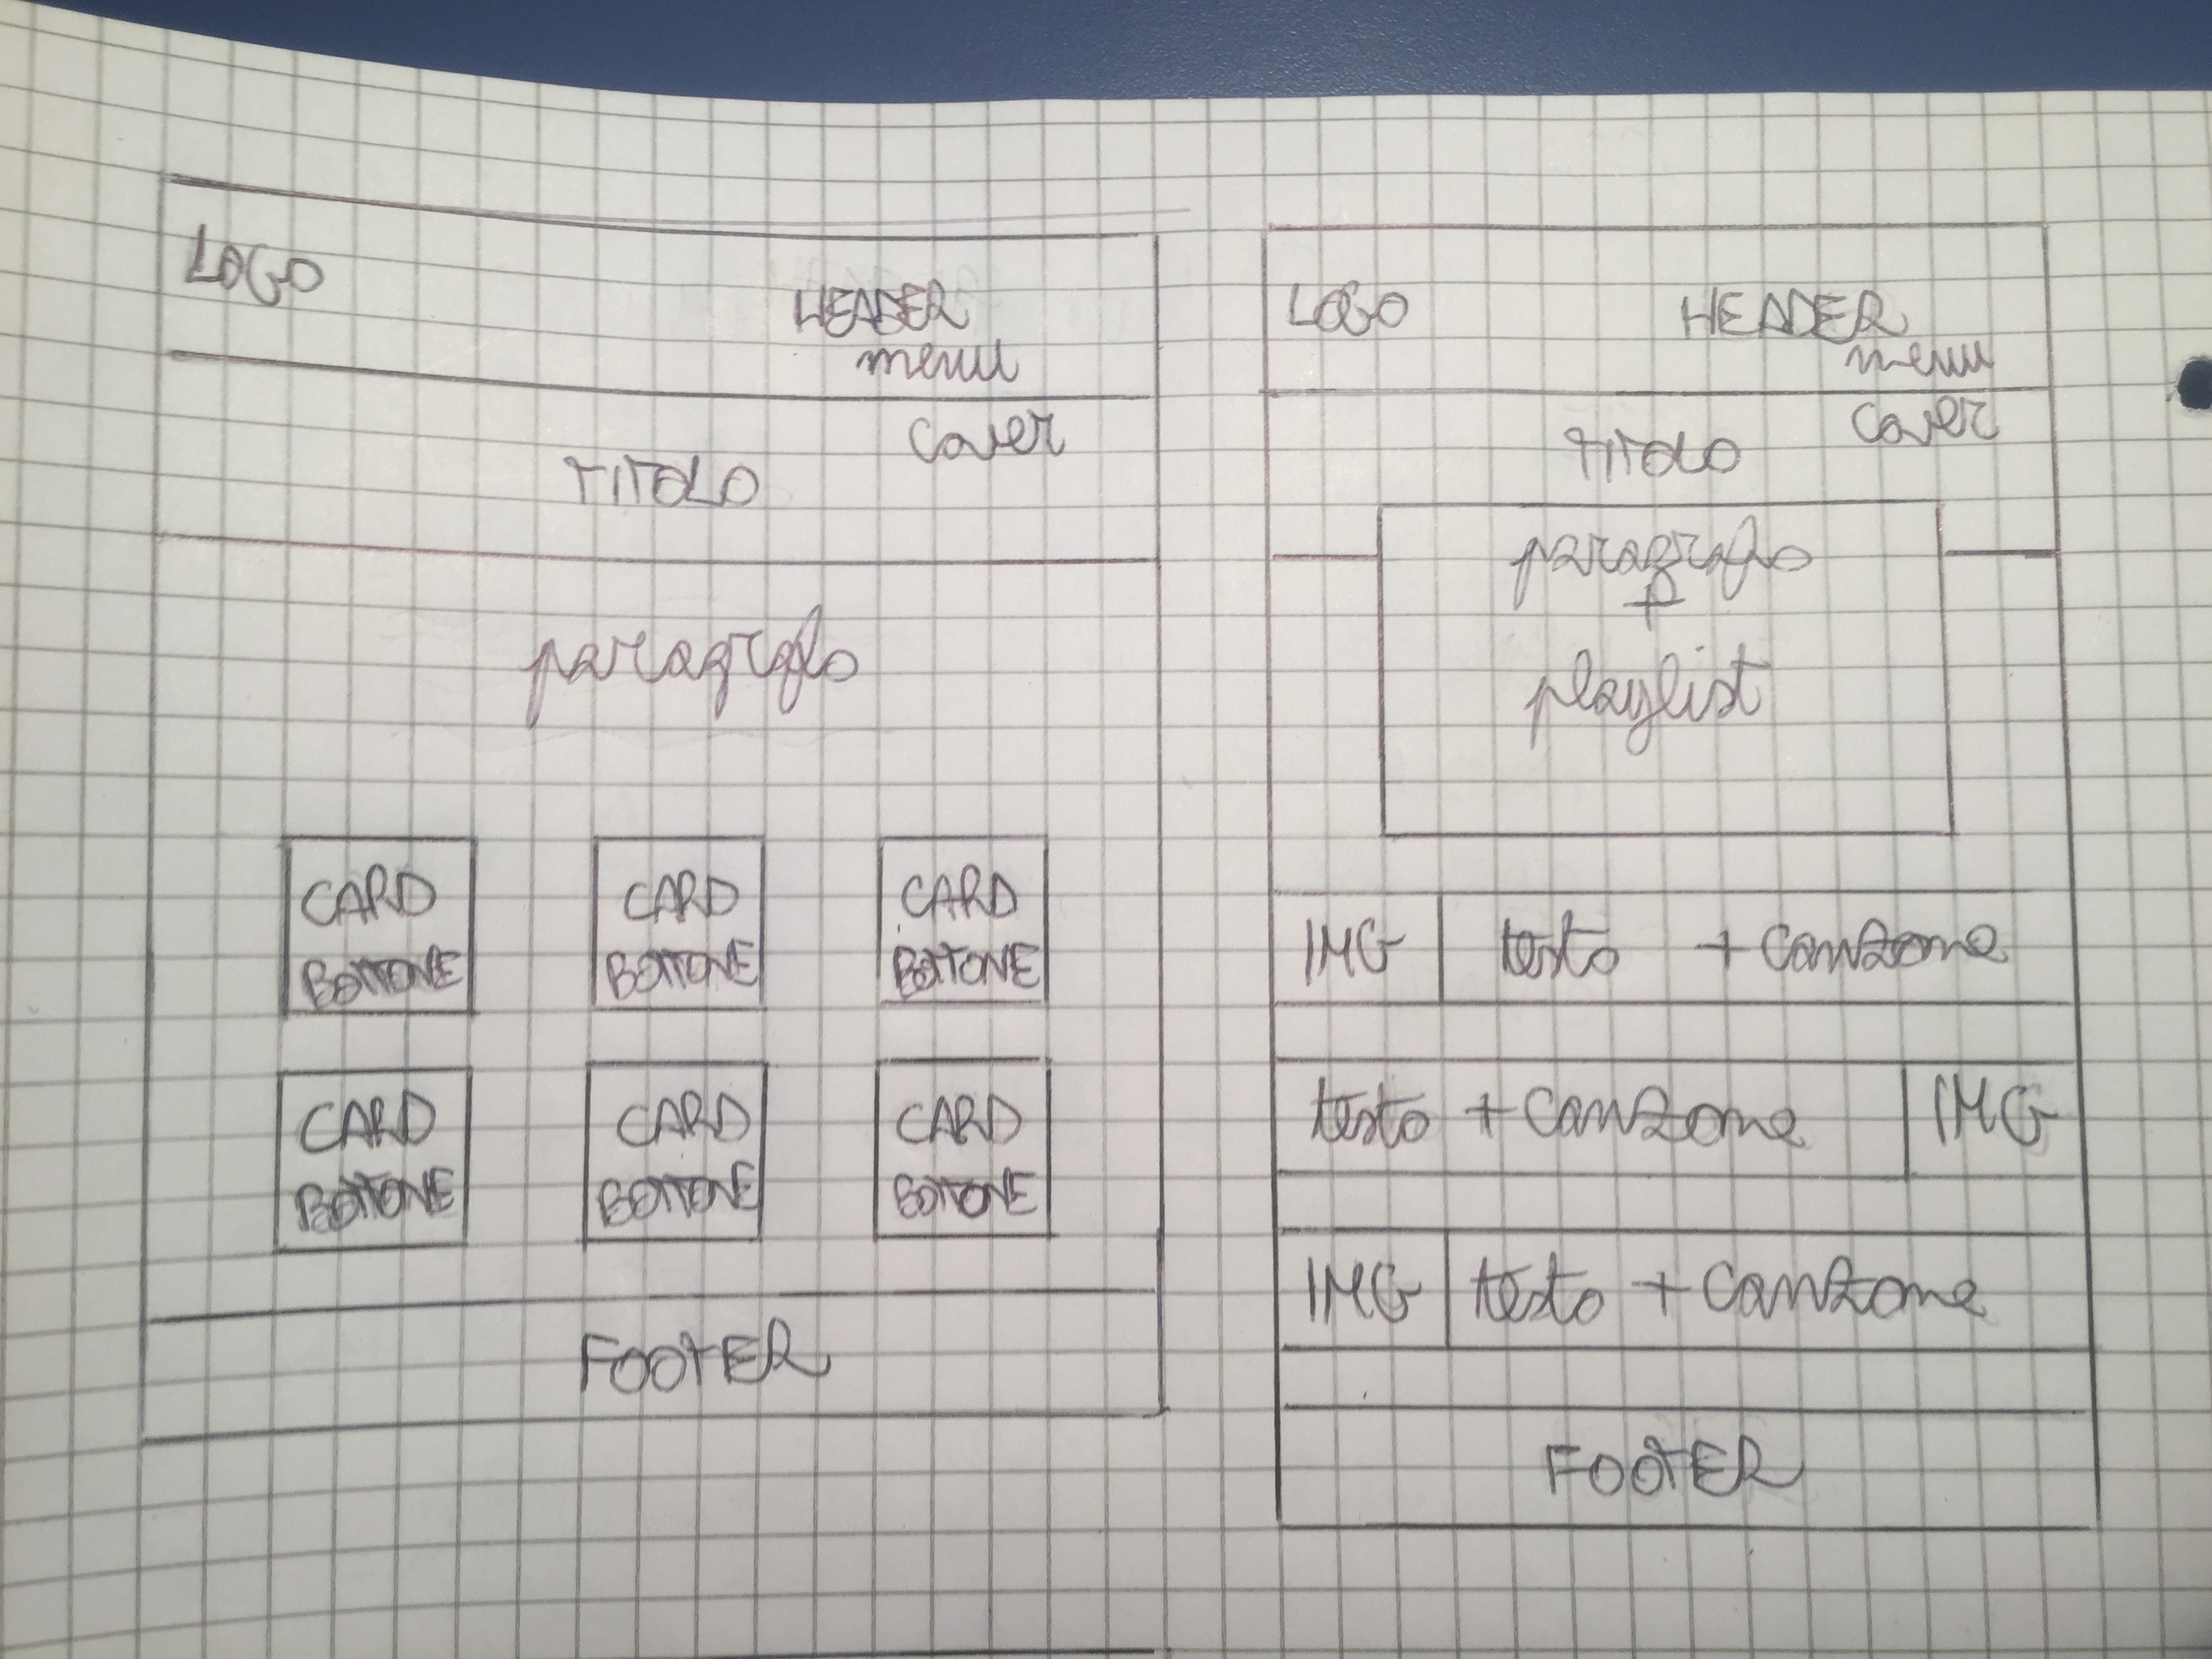 LOGO
HEADER
menu
cover
TITOLO
paragrafo
CARD
BOTTONE
CARD
BOTTONE
CARD
BOTTONE
CARD
BOTTONE
CARD
BOTTONE
CARD
BOTTONE
FOOTER
LOGO
HEADER
menu
cover
TITOLO
paragrafo
+
playlist
IMG testo + canzone
testo + canzone IMG
IMG testo + canzone
FOOTER